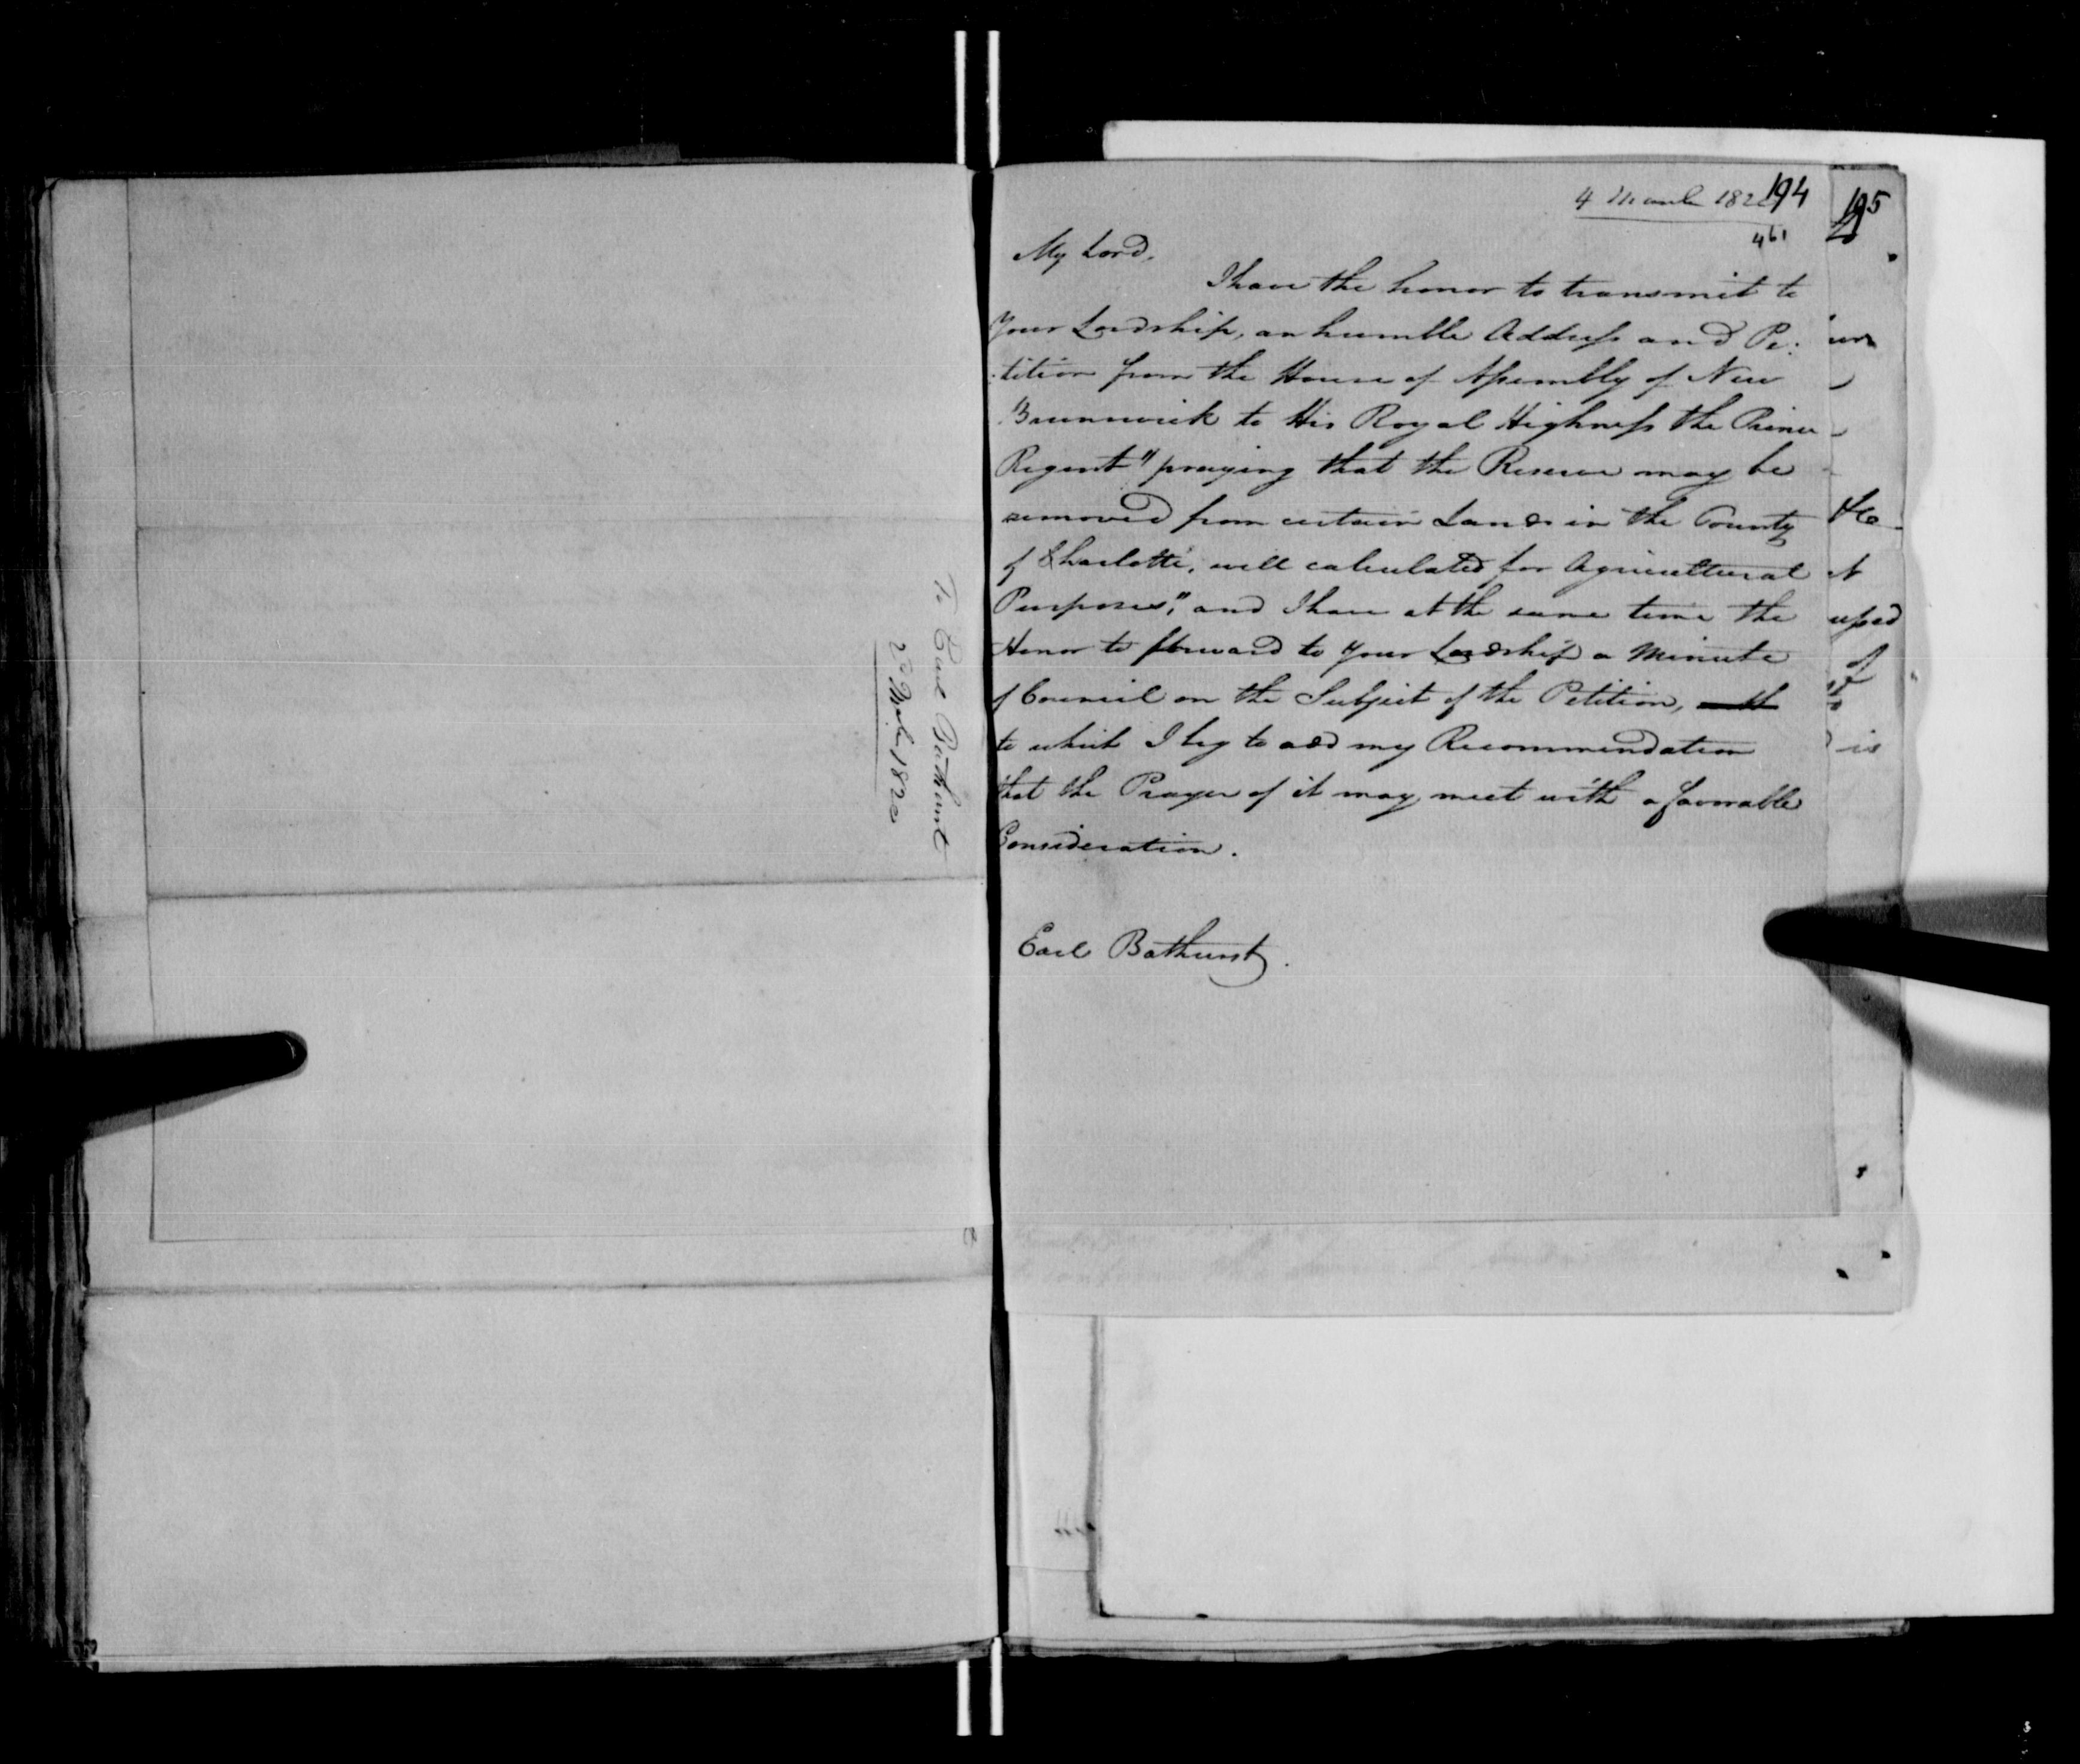 To Earl Bathurst
2d March 1820
194
4 March 182
461
195
My Lord,
I have the honor to transmit to
Your Lordship, an humble Address and Pe:
:tition from the House of Assembly of New
Brunswick to His Royal Highness the Prince
Regent "praying that the Reserve may be
removed from certain Lands in the County
of Charlotte, well calculated for Agricultural
Purposes", and I have at the same time the
Honor to forward to Your Lordship a Minute
of Council on the Subject of the Petition,
to which I beg to add my Recommendation
that the Prayer of it may meet with a favorable
Consideration.
Earl Bathurst.
of
is